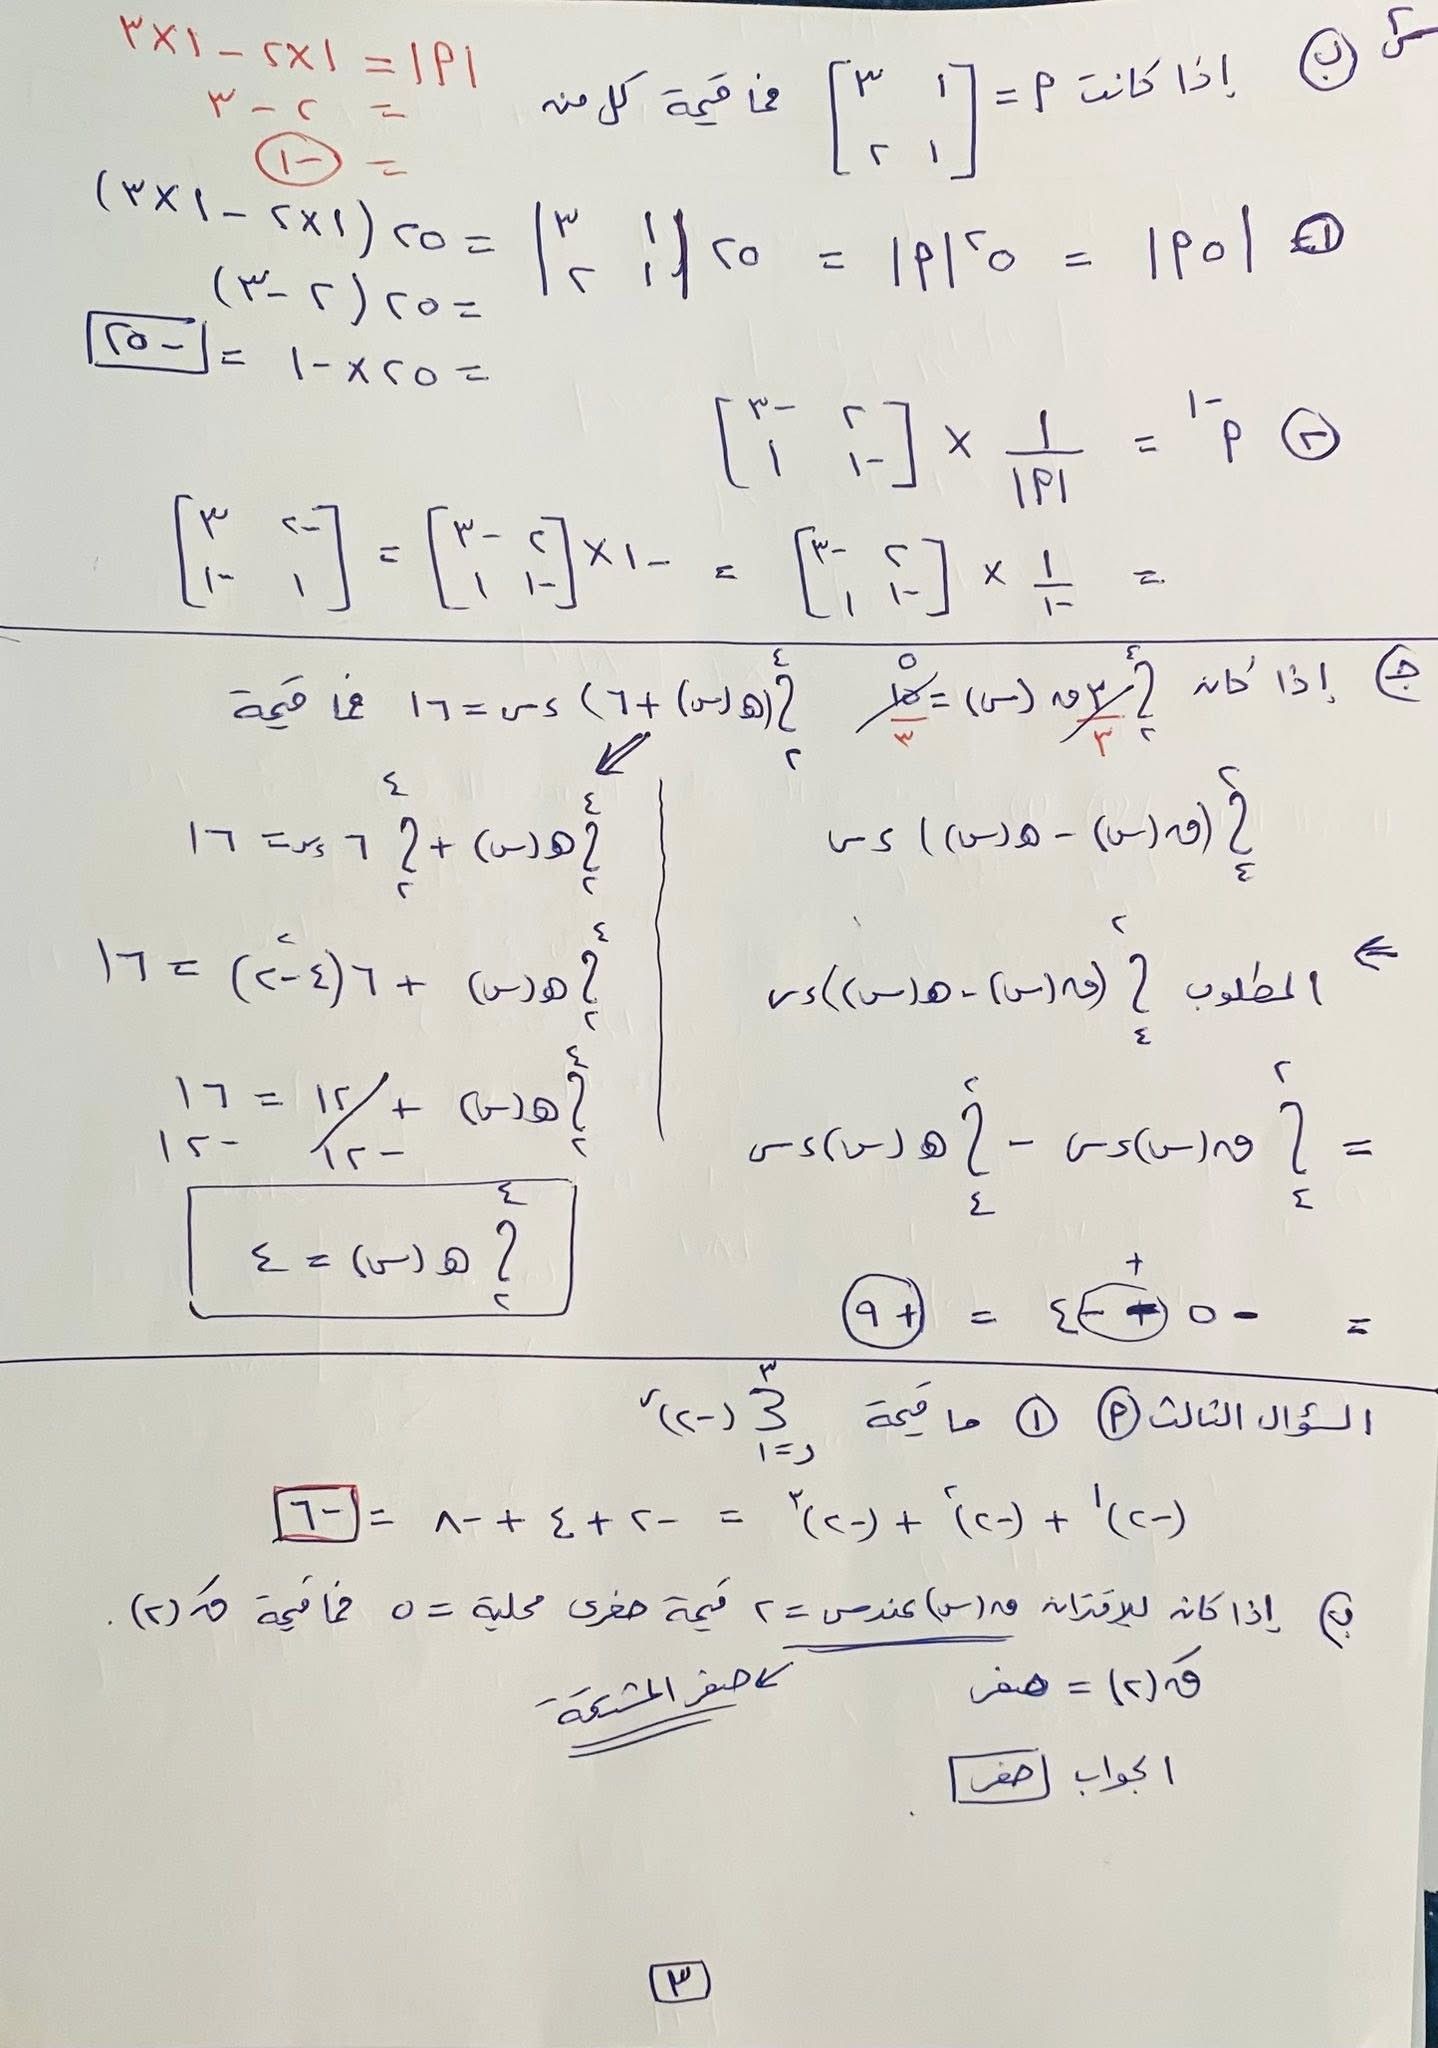 س٢ ب إذا كانت P = [١ ٣ ; ١ ٢] فما قيمة كل من
|P| = ١×٢ − ١×٣
= ٢ − ٣
= (−١)
① |٥P| = ٥٢|P| = ٢٥ |١ ٣ ; ١ ٢| = ٢٥(١×٢ − ١×٣)
= ٢٥(٢ − ٣)
= ٢٥ × −١ = −٢٥
② P−١ = ١/|P| × [٢ −٣ ; −١ ١]
= ١/−١ × [٢ −٣ ; −١ ١] = −١ × [٢ −٣ ; −١ ١] = [−٢ ٣ ; ١ −١]
ج إذا كان ∫٢٤ ٣/٣ ق(س) = ١٥/٣ ٥ ∫٢٤ (ه(س) + ٦) ءس = ١٦ فما قيمة
∫٤٢ (ق(س) − ه(س)) ءس
⇐ المطلوب ∫٤٢ (ق(س) − ه(س)) ءس
= ∫٤٢ ق(س) ءس − ∫٤٢ ه(س) ءس
= −٥ + −٤ = +٩
∫٢٤ ه(س) + ∫٢٤ ٦ ءس = ١٦
∫٢٤ ه(س) + ٦(٤ − ٢) = ١٦
٢
∫٢٤ ه(س) + ١٢ = ١٦
−١٢ −١٢
∫٢٤ ه(س) = ٤
السؤال الثالث P ① ما قيمة ∑ر=١٣ (−٢)ر
(−٢)١ + (−٢)٢ + (−٢)٣ = −٢ + ٤ + −٨ = −٦
ب إذا كان للاقتران ق(س) عند س = ٢ قيمة صغرى محلية = ٥ فما قيمة قَ(٢).
قَ(٢) = صفر
صفر المشتقة
الجواب صفر
٣